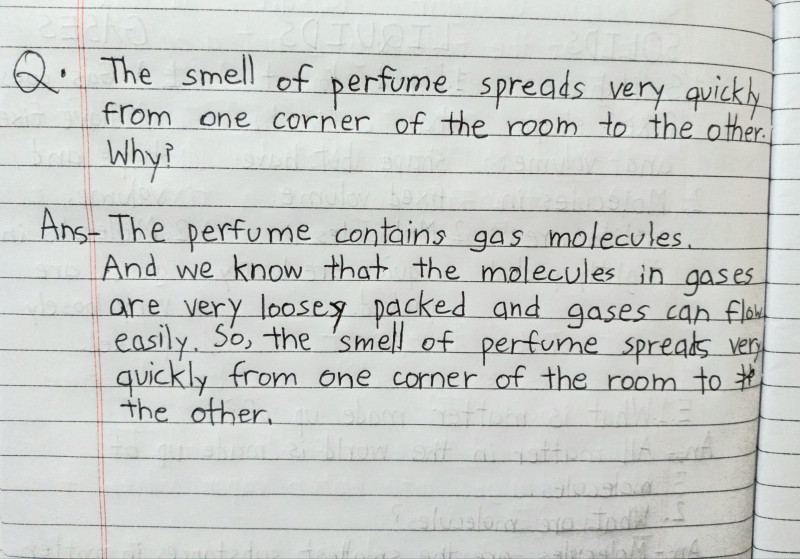 Q. The smell of perfume spreads very quickly
from one corner of the room to the other.
Why?
Ans- The perfume contains gas molecules.
And we know that the molecules in gases
are very loosey packed and gases can flow
easily. So, the smell of perfume spreads very
quickly from one corner of the room to
the other.